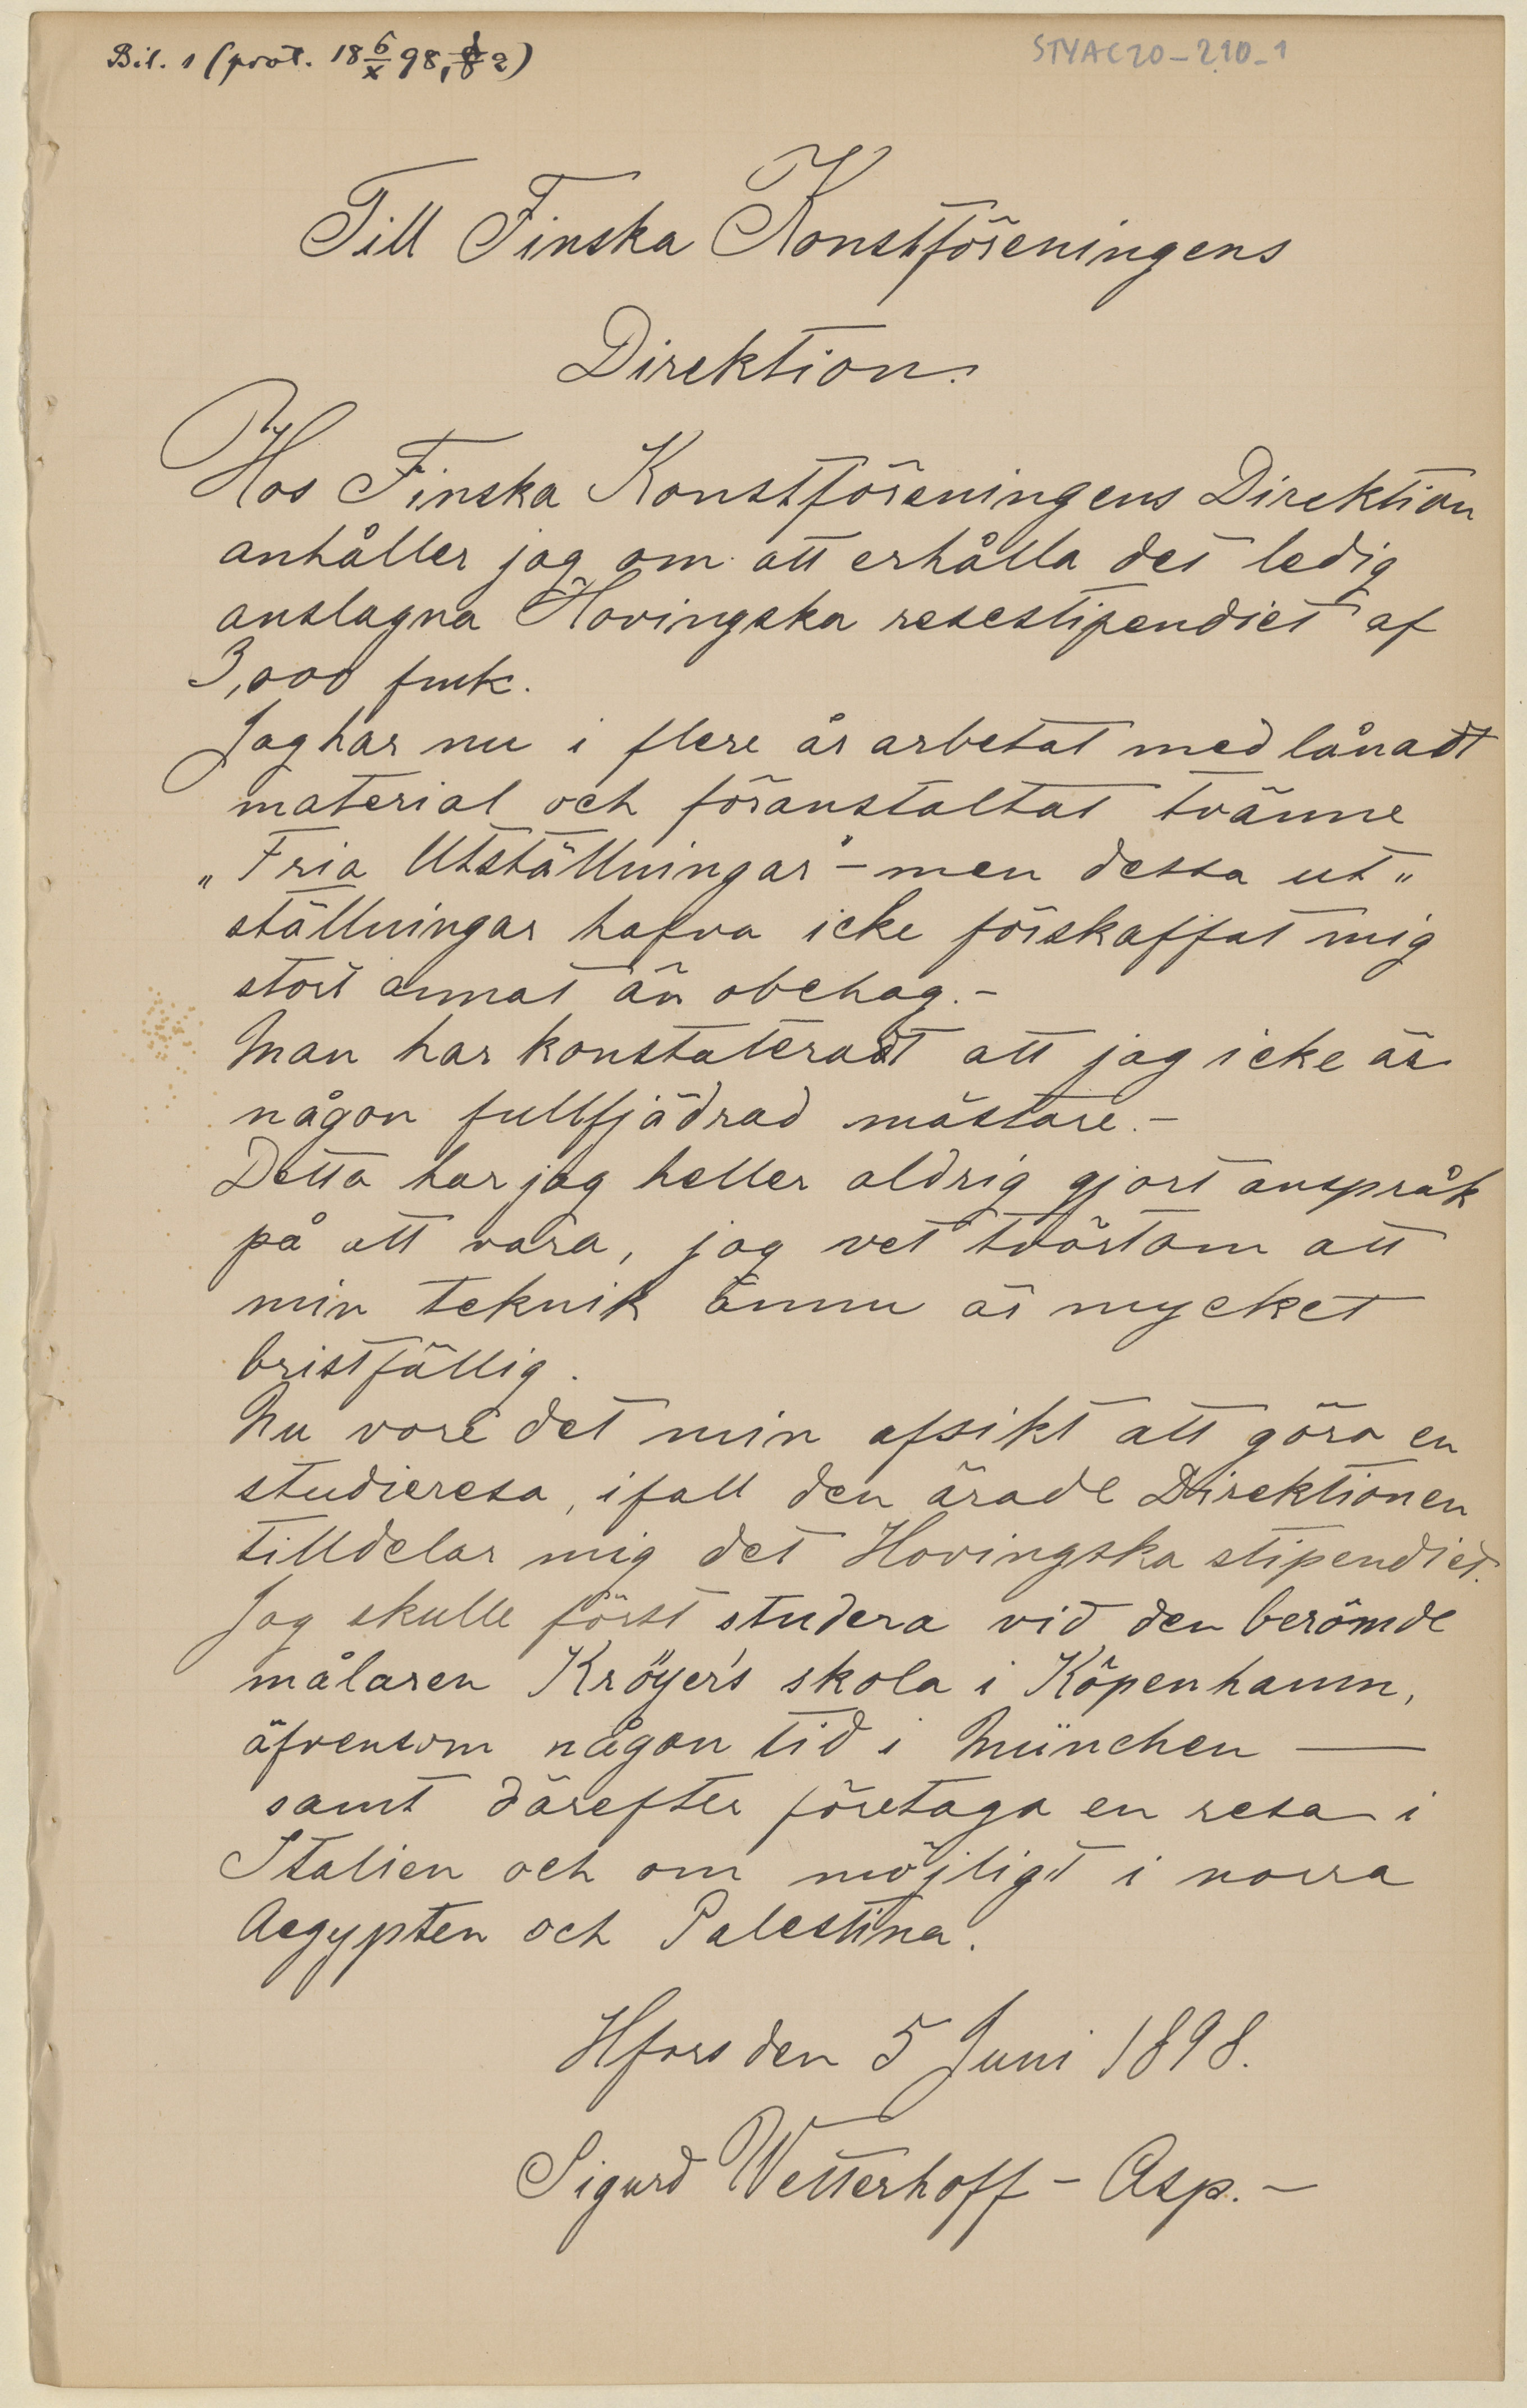 Bil. 1 (prot. 18 6/X 98, § 2)
STYAC20-210-1
Till Finska Konstföreningens
Direktion.
Hos Finska Konstföreningens Direktion
anhåller jag om att erhålla det ledig
anslagna Hovingska resestipendiet af
3,000 fmk.
Jag har nu i flere år arbetat med lånadt
material och föranstaltat tvänne
„Fria Utställningar" – men dessa ut„
ställningar hafva icke förskaffat mig
stort annat än obehag. –
Man har konstateradt att jag icke är
någon fullfjädrad mästare. –
Detta har jag heller aldrig gjort anspråk
på att vara, jag vet tvärtom att
min teknik ännu är mycket
bristfällig.
Nu vore det min afsikt att göra en
studieresa, ifall den ärade Direktionen
tilldelar mig det Hovingska stipendiet.
Jag skulle först studera vid den berömde
målaren Kröyer's skola i Köpenhamn,
äfvensom någon tid i München —
samt därefter företaga en resa i
Italien och om möjligt i norra
Aegypten och Palestina.
Hfors den 5 Juni 1898.
Sigurd Wetterhoff – Asp. –